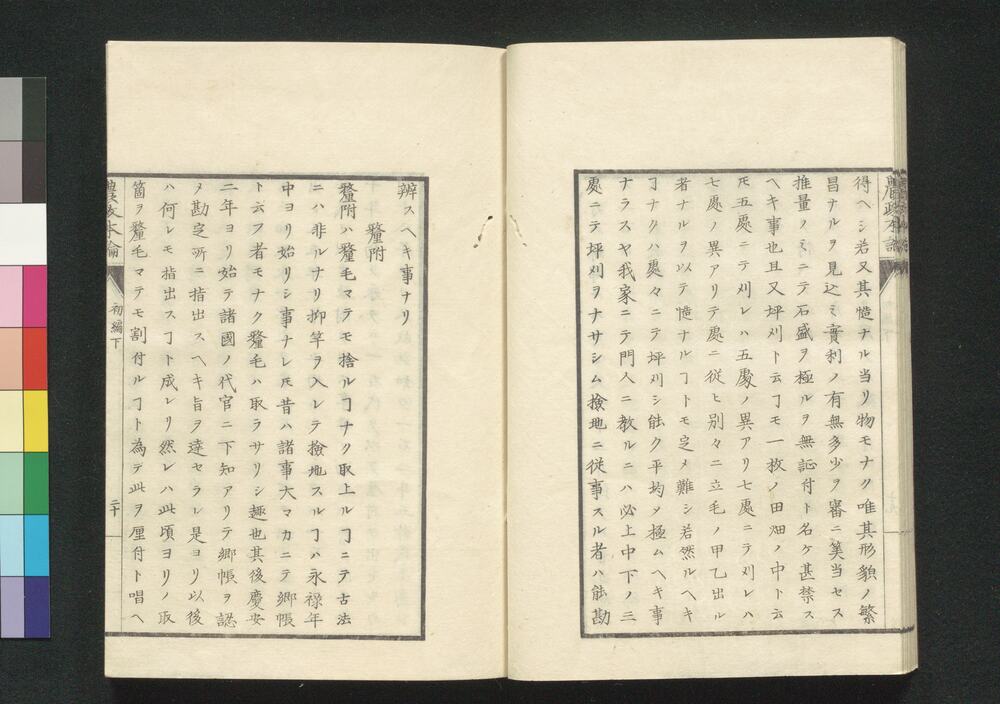 農政本論
得ヘシ若又其慥ナル当リ物モナク唯其形貌ノ繁
昌ナルヲ見込ミ實利ノ有無多少ヲ審ニ筭当セス
推量ノミニテ石盛ヲ極ルヲ無証付ト名ケ甚禁ス
ヘキ事也且又坪刈ト云ヿモ一枚ノ田畑ノ中ト云
𪜈五處ニテ刈レハ五處ノ異アリ七處ニテ刈レハ
七處ノ異アリテ處ニ従ヒ別々ニ立毛ノ甲乙出ル
者ナルヲ以テ慥ナルヿトモ定メ難シ若然ルヘキ
ヿナクハ處々ニテ坪刈シ能ク平均メ極ムヘキ事
ナラスヤ我家ニテ門人ニ教ルニハ必上中下ノ三
處ニテ坪刈ヲナサシム撿地ニ従事スル者ハ能勘
辨スヘキ事ナリ
釐附
釐附ハ釐毛マテモ捨ルヿナク取上ルヿニテ古法
ニハ非ルナリ抑竿ヲ入レテ撿地スルヿハ永禄年
中ヨリ始リシ事ナレ𪜈昔ハ諸事大マカニテ郷帳
ト云フ者モナク釐毛ハ取ラサリシ趣也其後慶安
二年ヨリ始テ諸國ノ代官ニ下知アリテ郷帳ヲ認
ヲ勘定所ニ指出スヘキ旨ヲ達セラル是ヨリ以後
ハ何レモ指出スヿト成レリ然レハ此頃ヨリノ取
箇ヲ釐毛マテモ割付ルヿト為テ此ヲ厘付ト唱ヘ
農政本論
初編下
二十